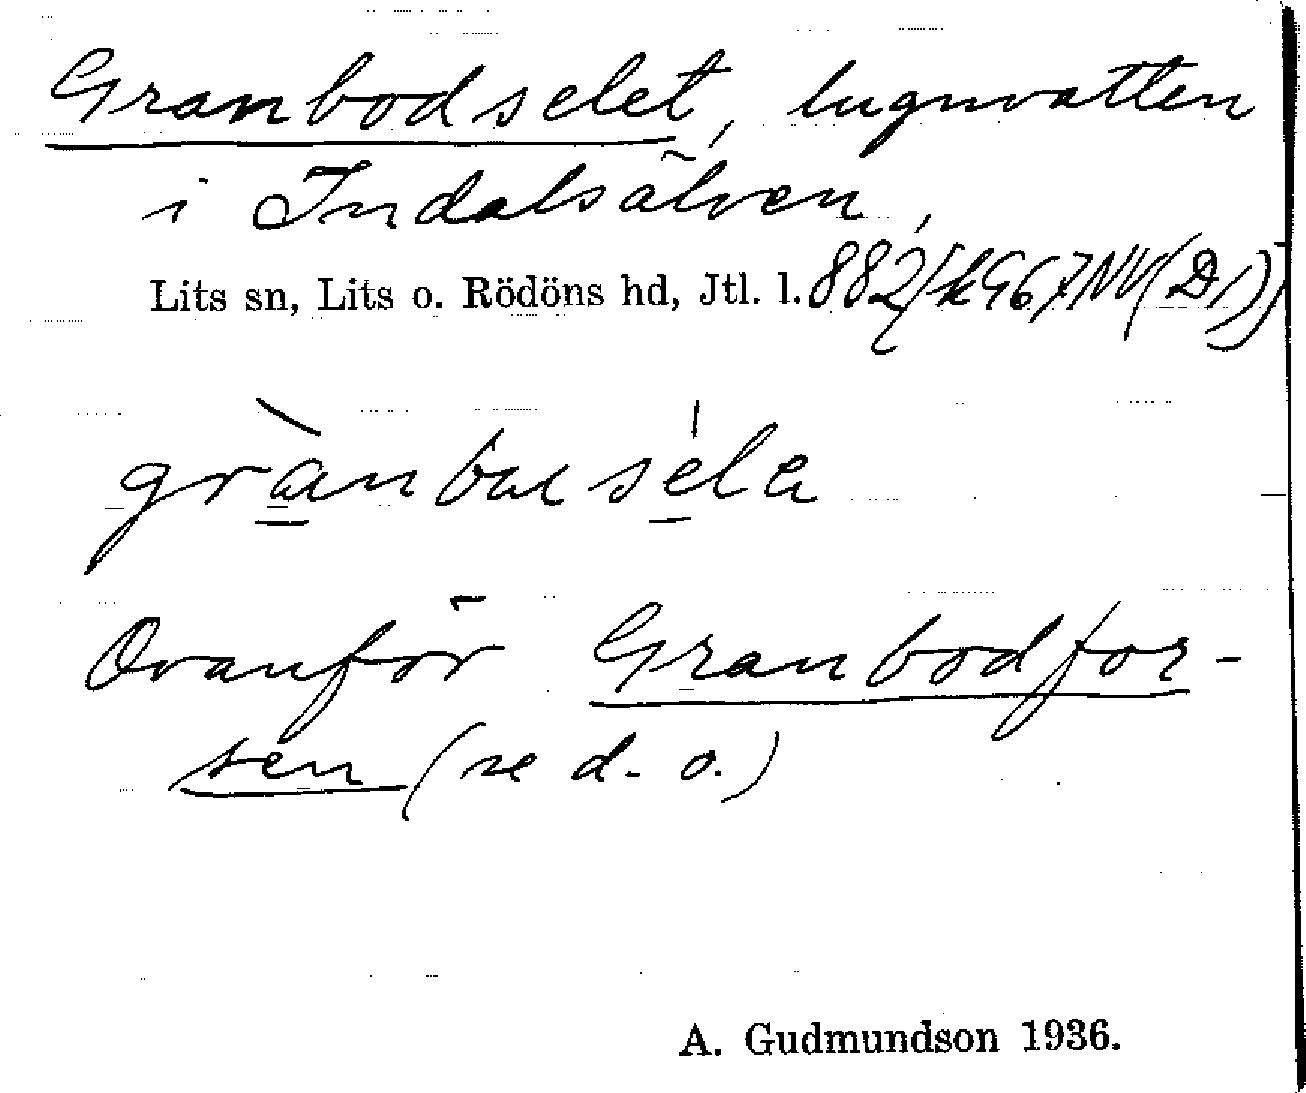 Granbodselet, lugnvatten
i Indalsälven,
Lits sn, Lits o. Rödöns hd, Jtl. l.
Ovanför Granbodfor-
sen (se d. o.)
A. Gudmundson 1936.